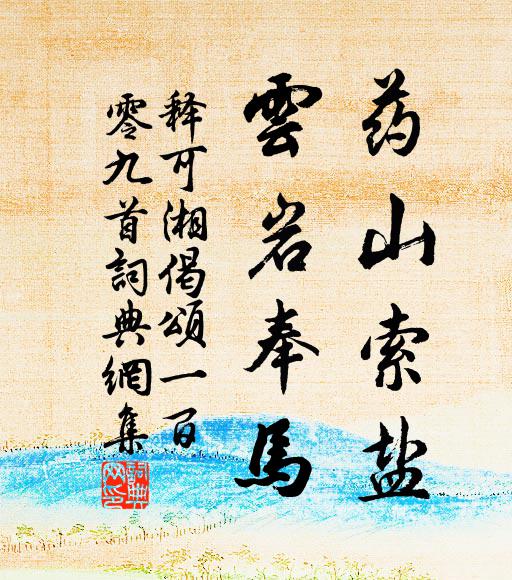 药山索盐
雲岩奉馬
释可湘偈頌一百
零九首詞典網集